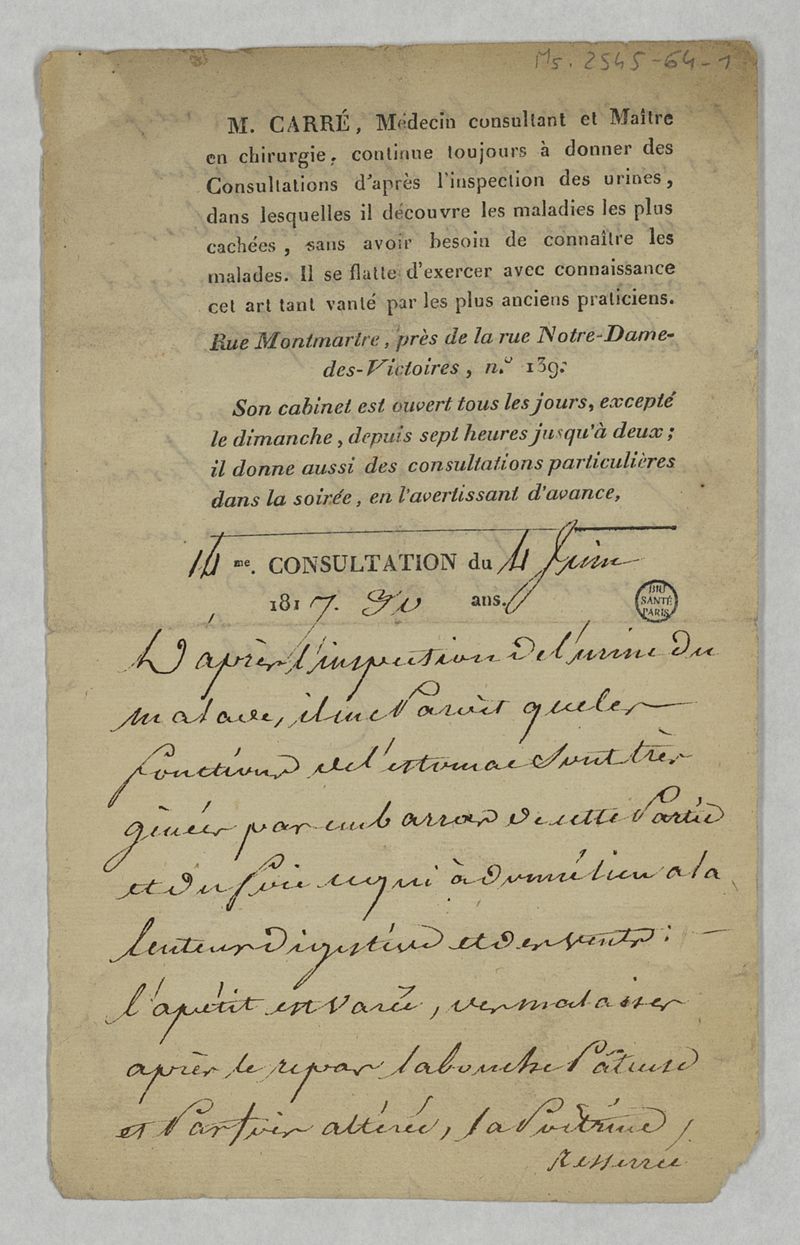 Ms. 2545-64-1
M. CARRÉ, Médecin consultant et Maître
en chirurgie, continue toujours à donner des
Consultations d'après l'inspection des urines,
dans lesquelles il découvre les maladies les plus
cachées, sans avoir besoin de connaître les
malades. Il se flatte d'exercer avec connaissance
cet art tant vanté par les plus anciens praticiens.
Rue Montmartre, près de la rue Notre-Dame-
des-Victoires, n.º 139.
Son cabinet est ouvert tous les jours, excepté
le dimanche, depuis sept heures jusqu'à deux;
il donne aussi des consultations particulières
dans la soirée, en l'avertissant d'avance,
14 me. CONSULTATION du 4 Juin
1817. ans.
BIU
SANTÉ
PARIS
D'après l'inspection de l'urine du
malade, il me Paroit que les
fonctions de l'estomac Sont très
gènées par embarras de cette Partie
et du foie ce qui à donné lieu a la
lenteur digestive et des vents:
l'apétit est varié, des malaises
après le repas la bouche Pâteuse
et Parfois altérée, la Poitrine
Resserrée